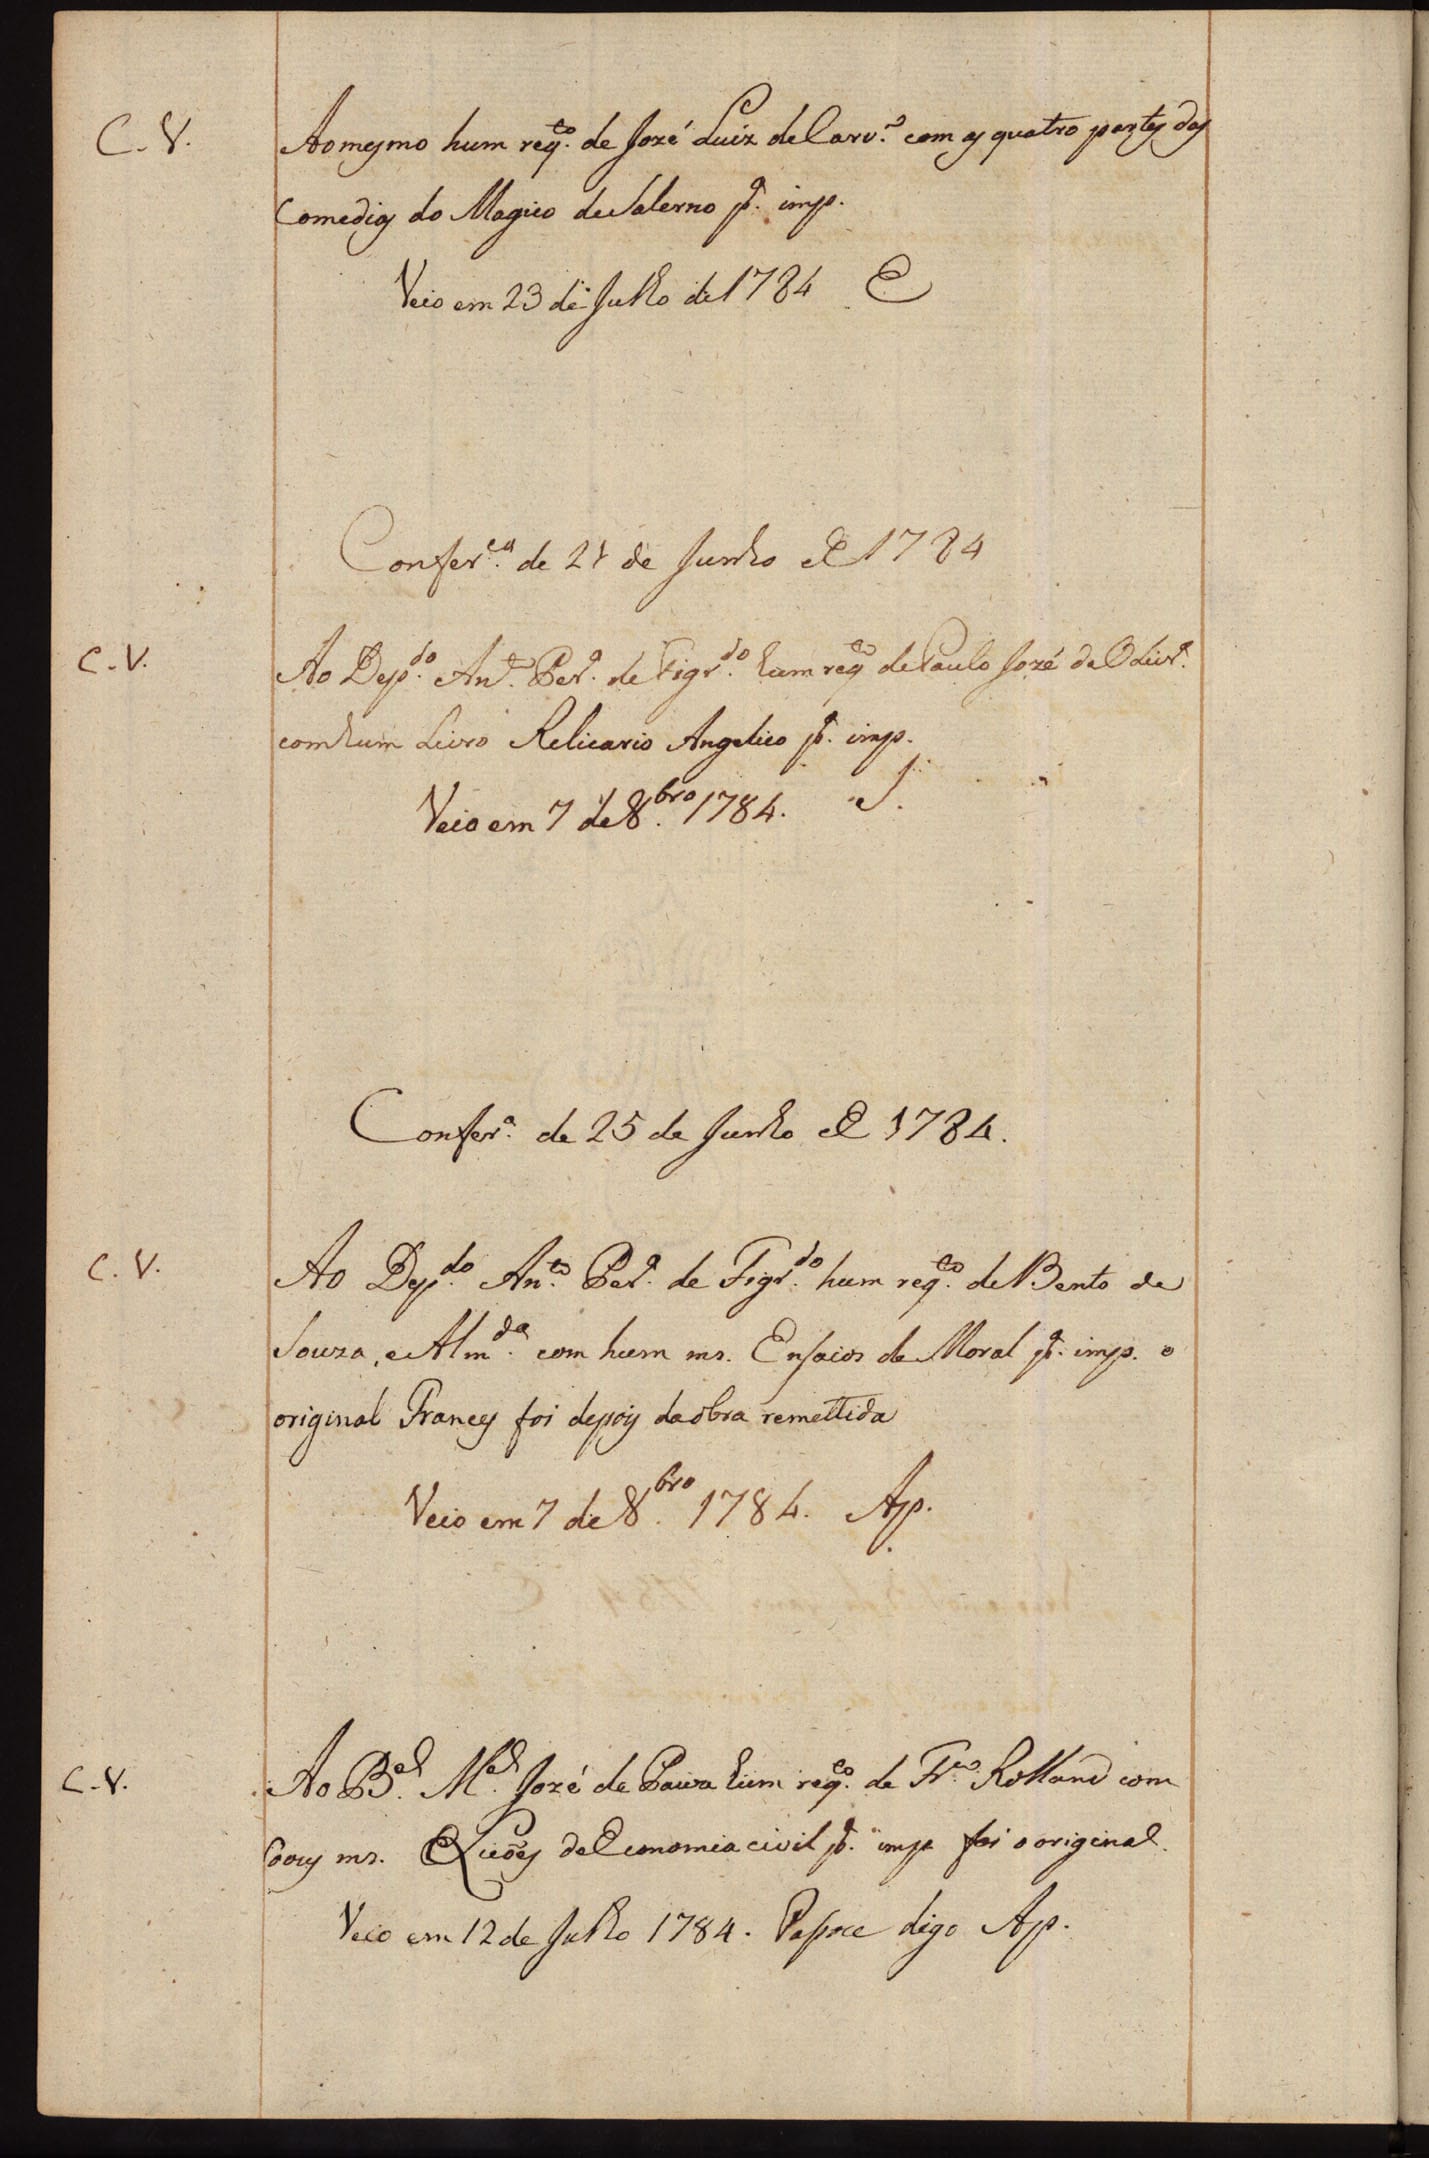 C. V.
Ao mesmo hum req.to de Jozé Luiz de Carv.o com as quatro partes das
Comedias do Magico de Salerno p.a imp.
Veio em 23 de Julho de 1784 E
Confer.ca de 21 de Junho de 1784
C. V.
Ao Dep.do Ant.o Per.a de Figr.do hum req.to de Paulo Jozé de Oliv.a
com hum Livro Relicario Angelico p.a imp.
Veio em 7 de 8.bro 1784. S.
Confer.a de 25 de Junho de 1784.
C. V.
Ao Dep.do Ant.o Per.a de Figr.do hum req.to de Bento de
Souza, e Alm.da com hum ms. Ensaios de Moral p.a imp. o
original Frances foi depois da obra remettida
Veio em 7 de 8.bro 1784. Ap.
C. V.
Ao B.el M.el Jozé de Paiva hum req.to de Fr.co Rolland com
dous ms. Licões de Economia civil p.a imp. foi o original.
Veio em 12 de Julho 1784. Passe digo Ap.